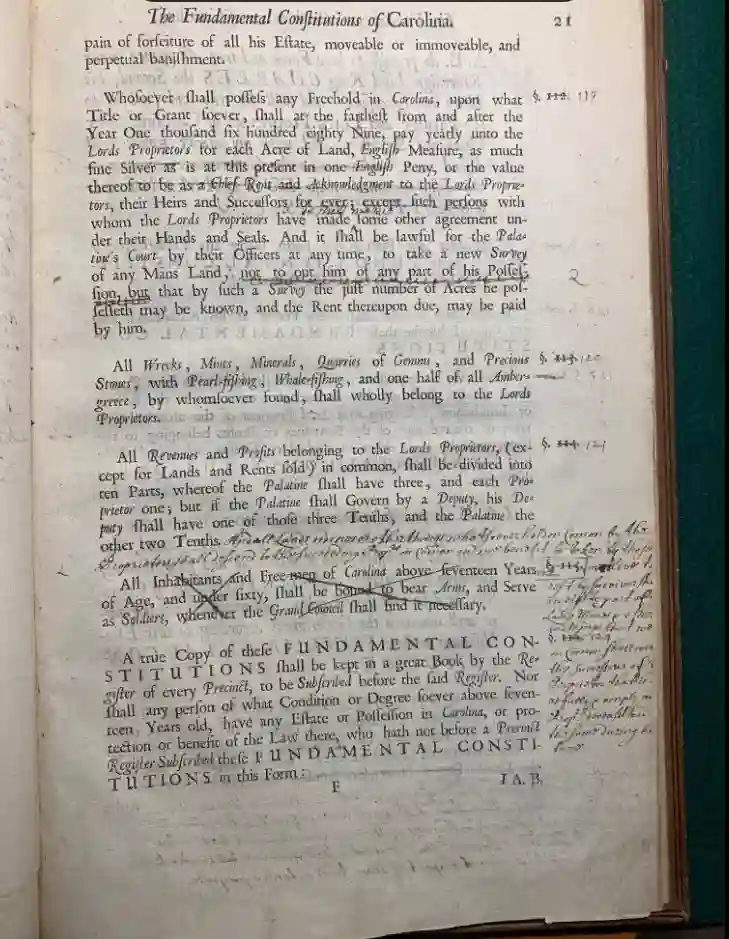 The Fundamental Conſtitutions of Carolina. 21
pain of forfeiture of all his Eſtate, moveable or immoveable, and
perpetual baniſhment.
Whoſoever ſhall poſſeſs any Freehold in Carolina, upon what §. 112. 119
Title or Grant ſoever, ſhall at the fartheſt from and after the
Year One thouſand ſix hundred eighty Nine, pay yearly unto the
Lords Proprietors for each Acre of Land, Engliſh Meaſure, as much
fine Silver as is at this preſent in one Engliſh Peny, or the value
thereof to be as a Chief Rent and Acknowledgment to the Lords Proprie-
tors, their Heirs and Succeſſors for ever; except ſuch perſons with
whom the Lords Proprietors have made ſome other agreement un-
der their Hands and Seals. And it ſhall be lawful for the Pala-
tine's Court by their Officers at any time, to take a new Survey
of any Mans Land, not to out him of any part of his Poſſeſ- 2
ſion, but that by ſuch a Survey the juſt number of Acres he poſ-
ſeſſeth may be known, and the Rent thereupon due, may be paid
by him.
All Wrecks, Mines, Minerals, Quarries of Gemms, and Precious §. 113. 120
Stones, with Pearl-fiſhing, Whale-fiſhing, and one half of all Amber-
greece, by whomſoever found, ſhall wholly belong to the Lords
Proprietors.
All Revenues and Profits belonging to the Lords Proprietors, (ex- §. 114. 121
cept for Lands and Rents ſold) in common, ſhall be divided into
ten Parts, whereof the Palatine ſhall have three, and each Pro-
prietor one; but if the Palatine ſhall Govern by a Deputy, his De-
puty ſhall have one of thoſe three Tenths, and the Palatine the
other two Tenths.
All Inhabitants and Free-men of Carolina above ſeventeen Years §. 115.
of Age, and under ſixty, ſhall be bound to bear Arms, and Serve
as Soldiers, whenever the Grand Council ſhall find it neceſſary.
A true Copy of theſe FUNDAMENTAL CON- §.
STITUTIONS ſhall be kept in a great Book by the Re-
giſter of every Precinct, to be Subſcribed before the ſaid Regiſter. Nor
ſhall any perſon of what Condition or Degree ſoever above ſeven-
teen Years old, have any Eſtate or Poſſeſſion in Carolina, or pro-
tection or benefit of the Law there, who hath not before a Precinct
Regiſter Subſcribed theſe FUNDAMENTAL CONSTI-
TUTIONS in this Form:
F I A. B.